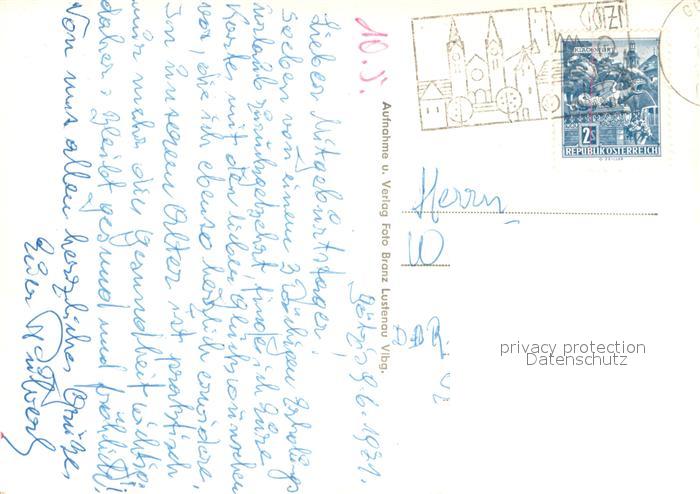 10. J.
Götzis, 9. 6. 1971.
Lieber Mitgeburtstager!
Soeben von einem 3 wöchigen Erholungs
urlaub zurückgekehrt finde ich Eure
Karte mit den lieben Glückwünschen
vor, die ich ebenso herzlich erwidere.
In unserem Alter ist praktisch
nur mehr die Gesundheit wichtig
daher: bleibt gesund und fröhlich!
Von uns allen herzliche Grüße,
Euer
Aufnahme u. Verlag Foto Branz Lustenau Vlbg.
GÖTZIS
KLAGENFURT
2S
REPUBLIK ÖSTERREICH
Herrn
W
privacy protection
Datenschutz